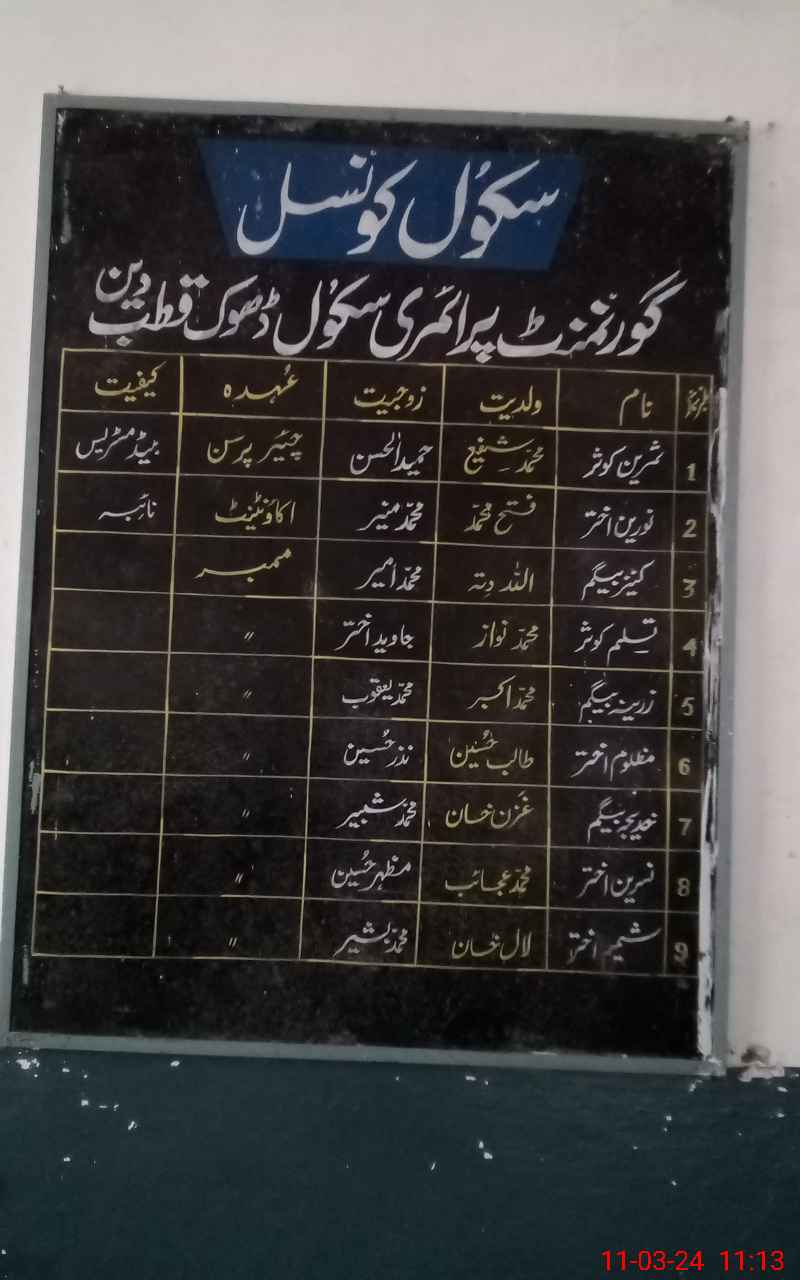 سکُول کونسل
گورنمنٹ پرائمری سکُول ڈھوک قطب دین
نمبر نام ولدیت زوجیت عُہدہ کیفیت
1 ثمرین کوثر محمّد شفیع حمید الحسن چئیر پرسن ہیڈ مسٹریس
2 نورین اختر فتح محمّد محمّد منیر اکاؤنٹینٹ نائبہ
3 کنیز بیگم اللہ دتہ محمّد امیر ممبر
4 تسلیم کوثر محمّد نواز جاوید اختر 〃
5 زرینہ بیگم محمّد اکبر محمّد یعقوب 〃
6 مظلوم اختر طالب حُسین نذر حُسین 〃
7 خدیجہ بیگم غزن خان محمّد شبیر 〃
8 نسرین اختر محمّد عجائب مظہر حُسین 〃
9 شمیم اختر لال خان محمّد بشیر 〃
11-03-24 11:13